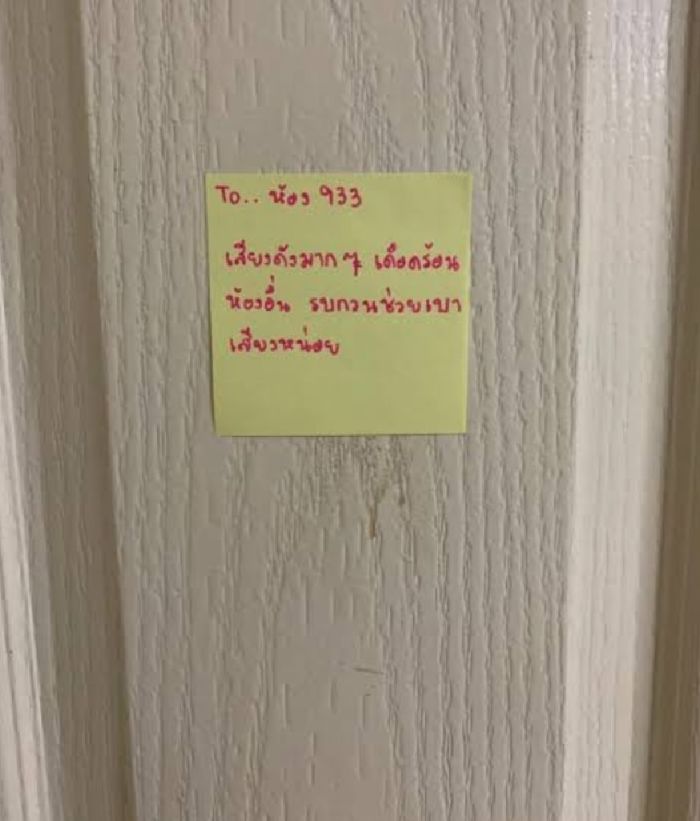 To.. ห้อง 933
เสียงดังมาก ๆ เดือดร้อน
ห้องอื่น รบกวนช่วยเบา
เสียงหน่อย